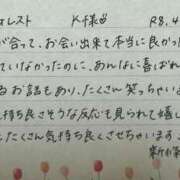 ォレスト K千様 R8.4
が合って、お会い出来て本当に良かっ
ていなかったのに、あんなに喜ばれ
るお話もあり、たくさん笑っちゃいま
持ち良さそうな反応も見られて嬉し
たくさん気持ち良くさせちゃいます